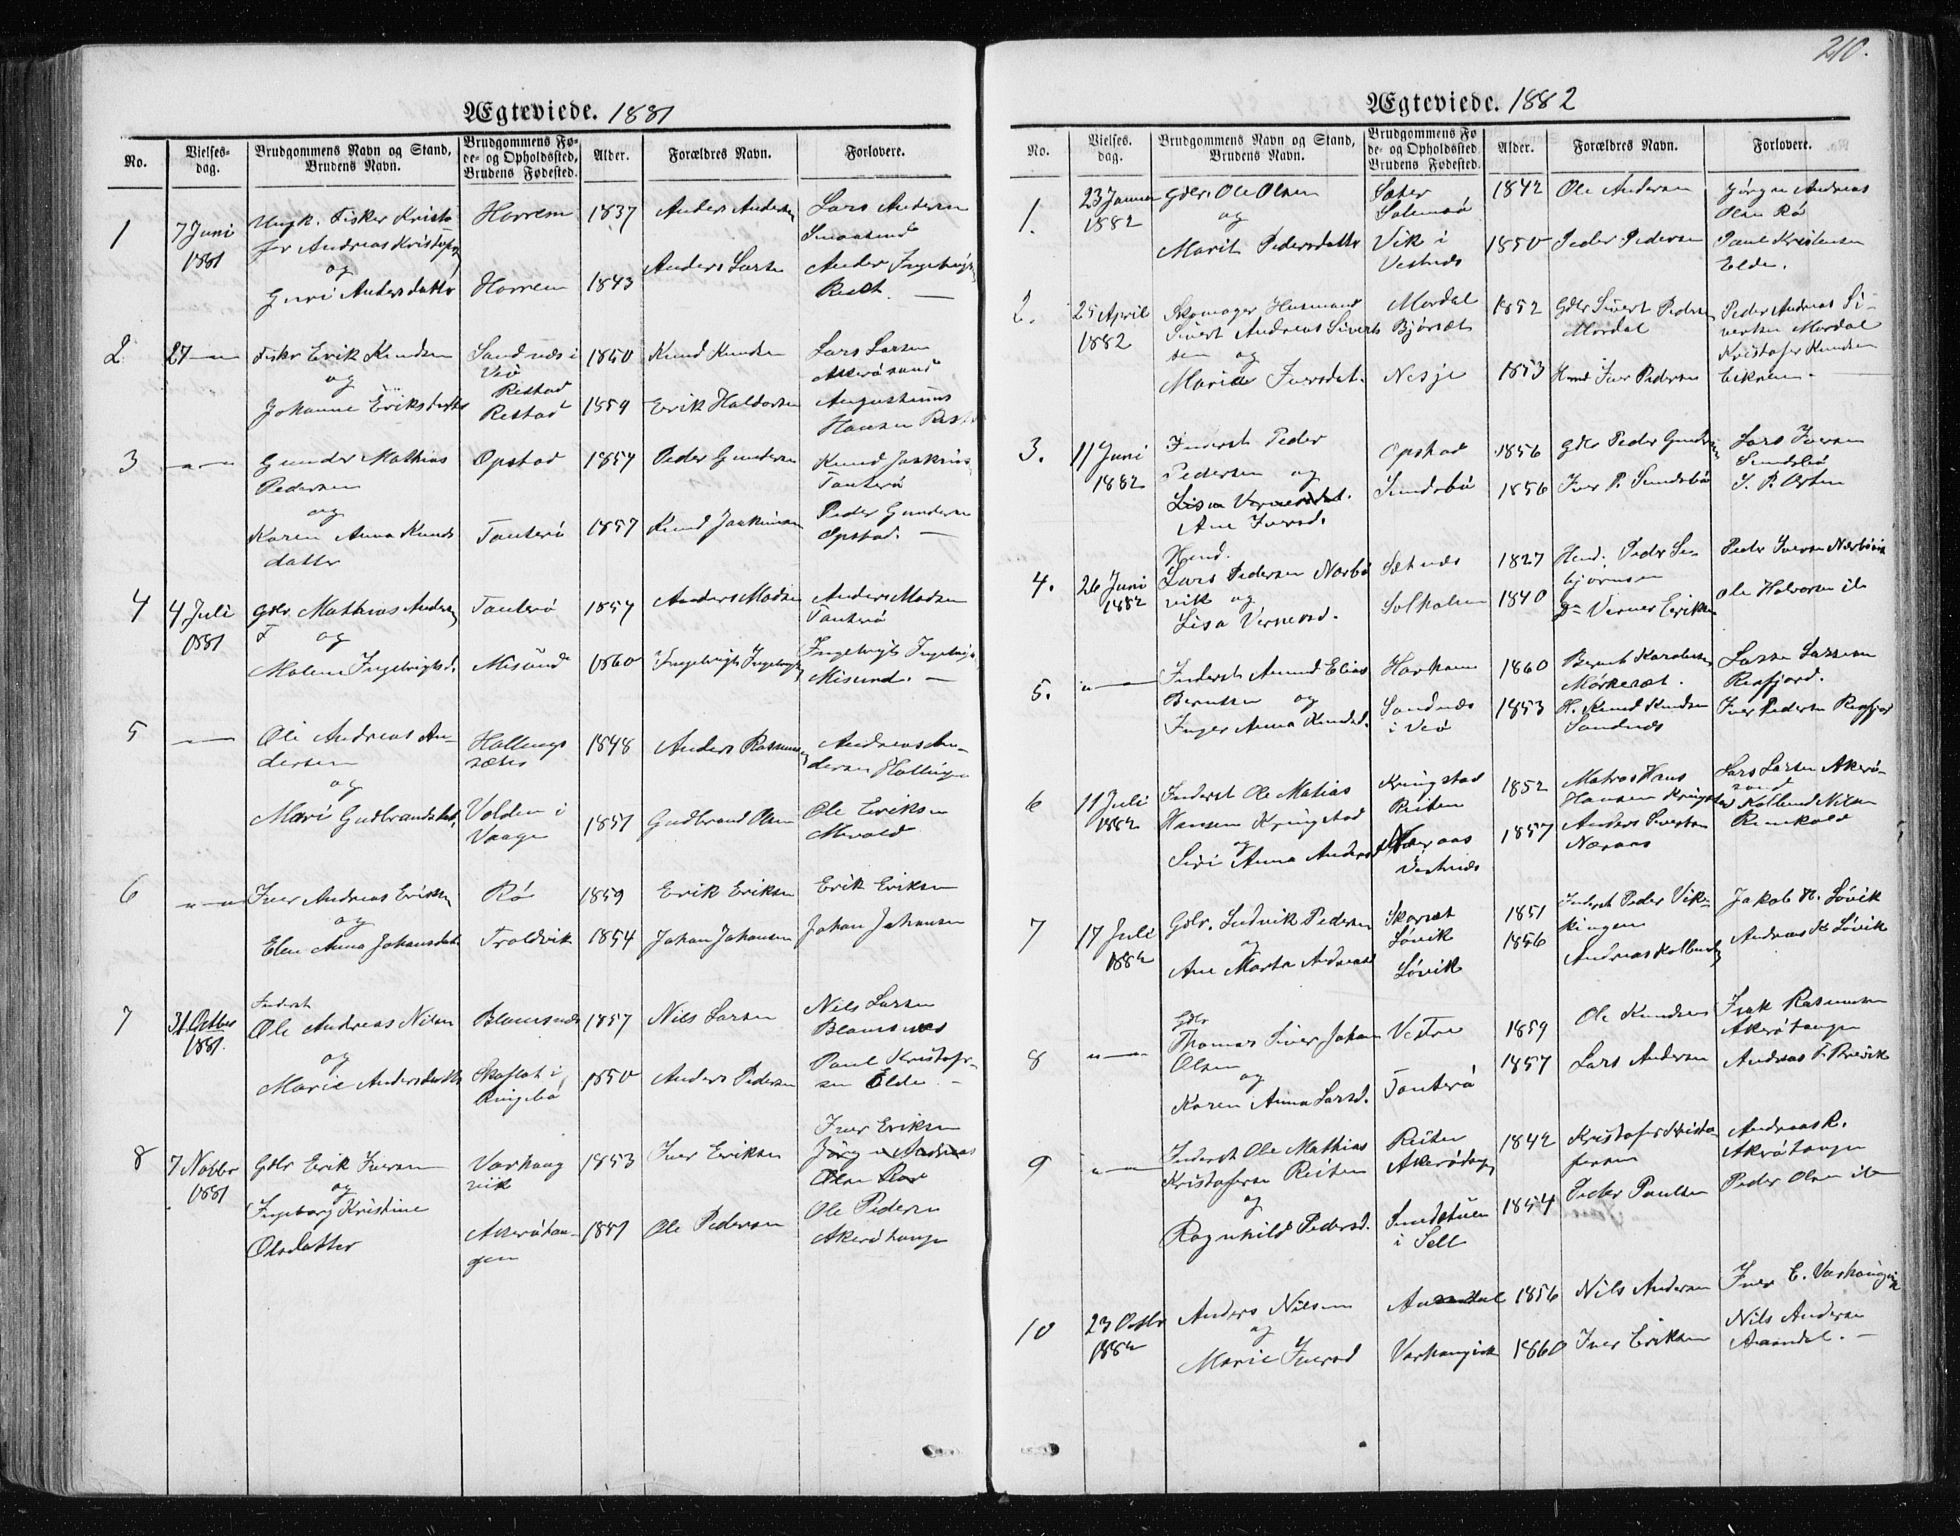 210.
Ægteviede. 1881
No.
Vielses-
dag.
Brudgommens Navn og Stand,
Brudens Navn.
Brudgommens Fø-
de- og Opholdssted,
Brudens Fødested.
Alder.
Forældres Navn.
Forlovere.
1
7 Juni
1881
Ungk. Fisker Kristo
fer Andreas Kristofers
og
Guri Andersdatter
Horrem
Horrem
1837
1843
Anders Andersen
Anders Larsen
Lars Andersen
Anders Ingebrigts
2
27 — "
Fisker Erik Knudsen
og
Johanne Eriksdatter
Sandnæs i
Veø
Restad
Restad
1850
1859
Knud Knudsen
Erik Haldorsen
Lars Larsen
Akerøsund
Augustinus
Hansen Rest
3
" — "
Gunder Mathias
Pedersen
og
Karen Anna Knuds
datter
Opstad
Tauterø
1854
1857
Peder Gundersen
Knud Joakimsen
Knud Joakims
Tauterø
Peder Gundersen
Opstad. —
4
4 Juli
1881
Gdbr. Mathias Anders
T og
Malene Ingebrigtsd.
Tauterø
Misund
1857
1860
Anders Madsen
Ingebrigt Ingebrigts
Anders Madsen
Tauterø
Ingebrigt Ingebrigts
Misund. —
5
" — "
Ole Andreas An-
dersen
og
Mari Gudbrandsdat.
Hollings
sæter
Volden i
Vaage
1848
1851
Anders Rasmussen
Gudbrand Olsen
Andreas An-
dersen Hollings
Ole Eriksen
Mevold
6
" — "
Iver Andreas Eriksen
og
Elen Anna Johansdat.
Rø
Troldvik
1859
1854
Erik Eriksen
Johan Johansen
Erik Eriksen
Johan Johansen
7
31 Octber
1881.
Inderst
Ole Andreas Nilsen
og
Marie Andersdatter
Blamsnæs
Skaflot i
Ringebø
1857
1850
Nils Larsen
Anders Pedersen
Nils Larsen
Blamsnæs
Paul Kristofer-
sen Elde. —
8
7 Novbr
1881
Gdbr Erik Iversen
og
Ingeborg Kristine
Olsdatter
Varhaug
vik
Akerøtan-
gen
1853
1851
Iver Eriksen
Ole Pedersen
Iver Eriksen
Jørgen Andreas
Olsen Røe
Ole Pedersen
Akerøtangen
Ægteviede. 1882
No.
Vielses-
dag.
Brudgommens Navn og Stand,
Brudens Navn.
Brudgommens Fø
de- og Opholdssted
Brudens Fødested.
Alder.
Forældres Navn.
Forlovere.
1.
23 Januar
1882
Gdbr. Ole Olsen
og
Marit Pedersdatter
Sæter
Vik i
Vestnæs
1842
1850
Ole Andersen
Peder Pedersen
Jørgen Andreas
Olsen Rø
Paul Kristensen
Elde.
2.
25 April
1882
Skomager Husmand
Sivert Andreas Siverts
sen og
Marie Iversdat.
Mordal
Bjørset
Nesje
1852
1853
Gdbr Sivert Pedersen
Mordal
Hmd Iver Pedersen
Peder Andreas Si-
vertsen Mordal
Kristofer Knudsen
Eikrem. —
3.
11 Juni
1882
Inderst Peder
Pedersen og
Lisa Vernersdat.
Ane Iversd.
Opstad
Sundsbø
1856
1856
Gdbr Peder Gunders
Iver P. Sundsbø
Lars Iversen
Sundsbø
4.
26 Juni
1882
Lars Pedersen Nærbø
vik og
Lisa Vernersd.
Sætnæs
Solholm
1827
1840
bjørnsen
Do Verner Eriksen
Peder Iversen Nærbøvik
Ole Halvorsen ib
5.
" — "
Inderst Amund Elias
Berntsen og
Inger Anna Knudsd.
Harham
Sandnæs
i Veø
1860
1853
Bernt Karolusen
Mørkeset.
H. Knud Knudsen
Sandnæs
Lasse Larsen
Iver Pedersen
6
11 Juli
1882
Inderst Ole Matias
Hansen Kringstad
og
Siri Anna Andersd.
Kringstad
Reiten
Næraas
Vestnæs
1852
1857
Matros Hans
Hansen Kringstad
Anders Sivertsen
Næraas
Lars Larsen Akerø-
sund
7
17 Juli
1882
Gdbr. Ludvik Pedersen
og
Ane Marta Andreasd
Skorset
Løvik
Løvik
1851
1856
Inderst Peder Vik-
kingen
Jakob N. Løvik
Andreas K Løvik
8
" — "
Gdbr
Thomas Siver Johan
Olsen
og
Karen Anna Larsd.
Vestre
Tauterø
1859
1857
Ole Knudsen
Lars Andersen
Isak Rasmussen
Akerøtangen
9
" — "
Inderst Ole Mathias
Kristofersen Reiten
og
Ragnhild Pedersd.
Reiten
Sundstuen
i Sell
1842
1854
Kristofer Kristo
fersen
Peder Paulsen
Andreas R.
Akerøtangen
Peder Olsen ib
10
23 Octbr
1882
Anders Nilsen
og
Marie Iversd
Varhaugvik
1856
1860
Nils Andersen
Iver Eriksen
Iver E. Varhaugvik
Nils Andersen